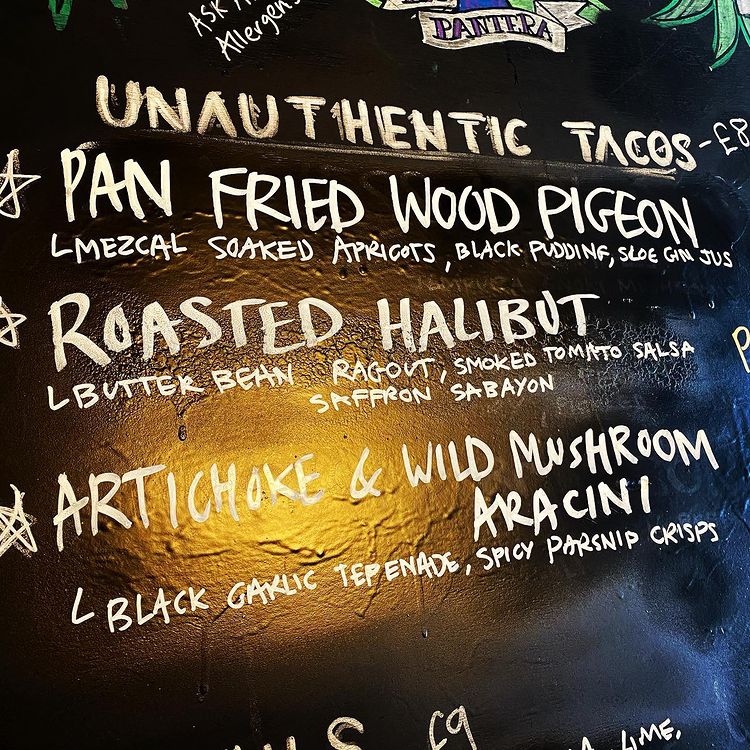 ASK
Allergens
PANTERA
UNAUTHENTIC TACOS - £8
PAN FRIED WOOD PIGEON
MEZCAL SOAKED APRICOTS, BLACK PUDDING, SLOE GIN JUS
ROASTED HALIBUT
BUTTER BEAN RAGOUT, SMOKED TOMATO SALSA
SAFFRON SABAYON
ARTICHOKE & WILD MUSHROOM
ARACINI
BLACK GARLIC TEPENADE, SPICY PARSNIP CRISPS
£9